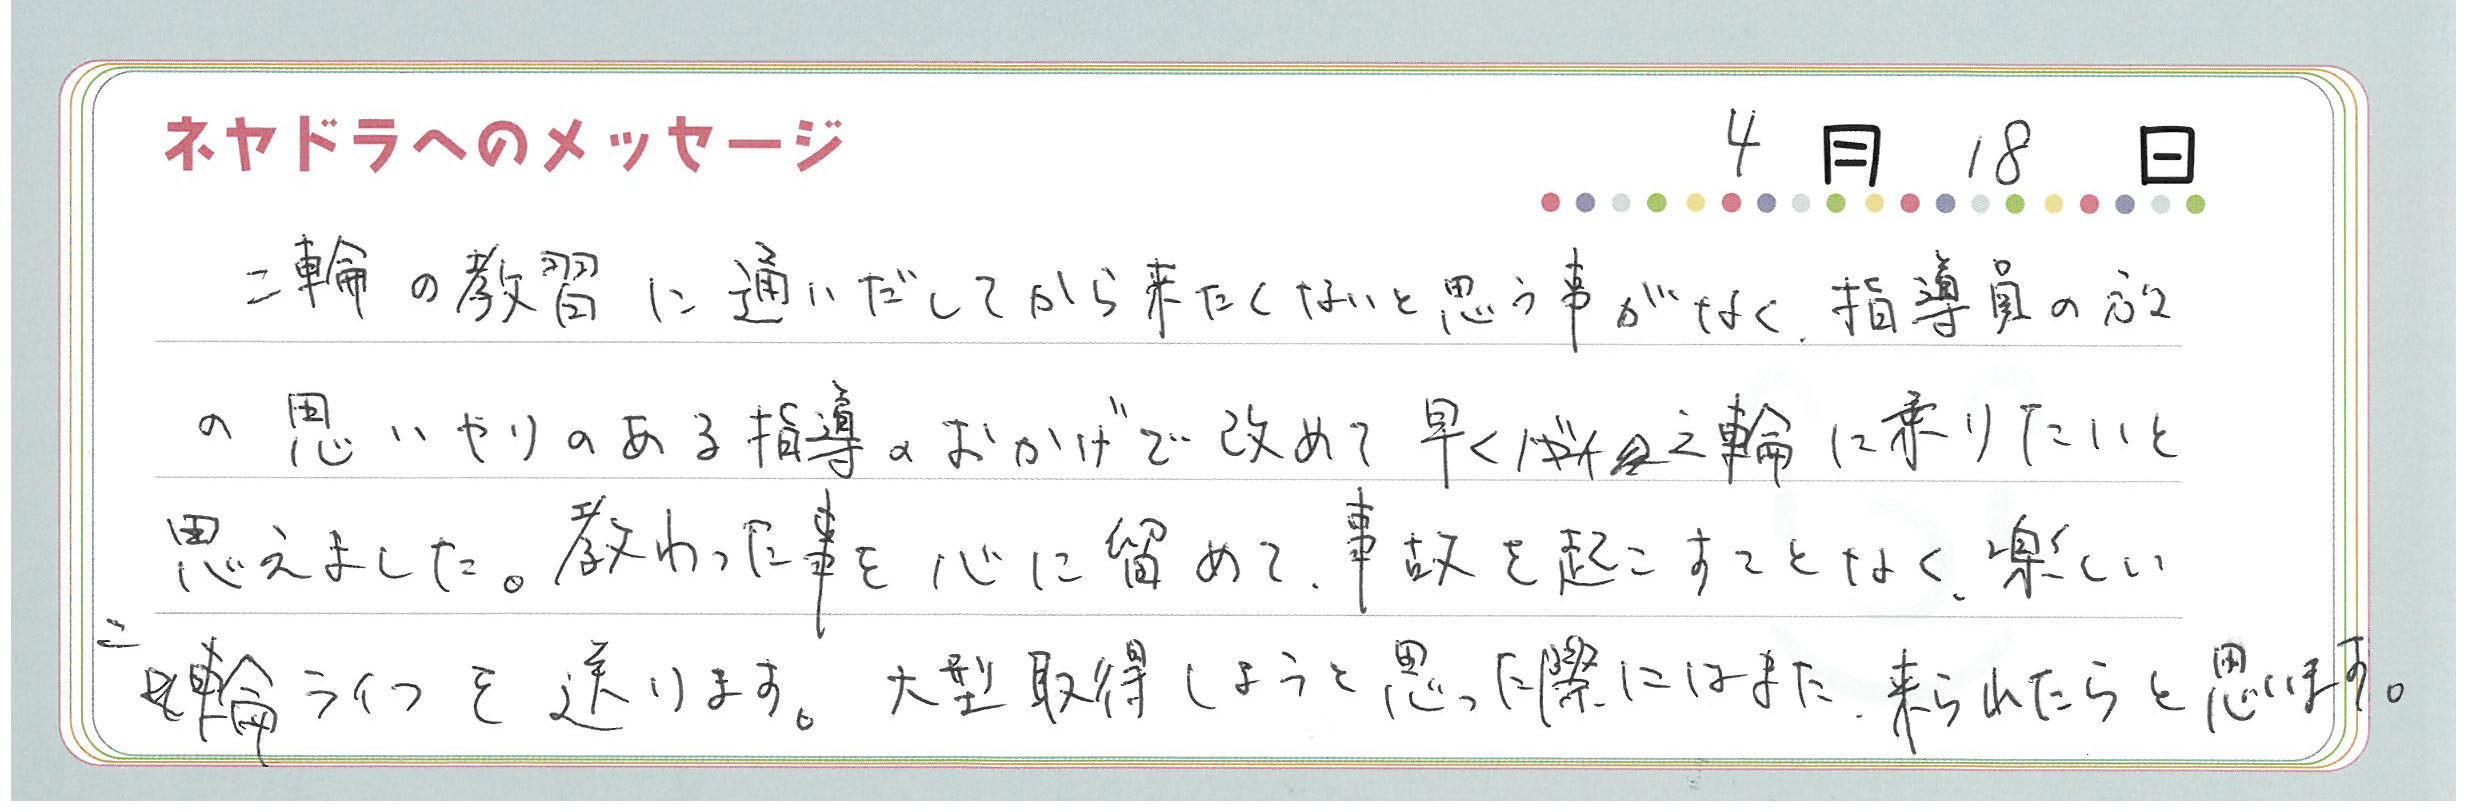 ネヤドラへのメッセージ
4月18日
二輪の教習に通いだしてから来たくないと思う事がなく、指導員の方
の思いやりのある指導のおかげで改めて早く二輪に乗りたいと
思えました。教わった事を心に留めて、事故を起こすことなく、楽しい
二輪ライフを送ります。大型取得しようと思った際にはまた、来られたらと思います。